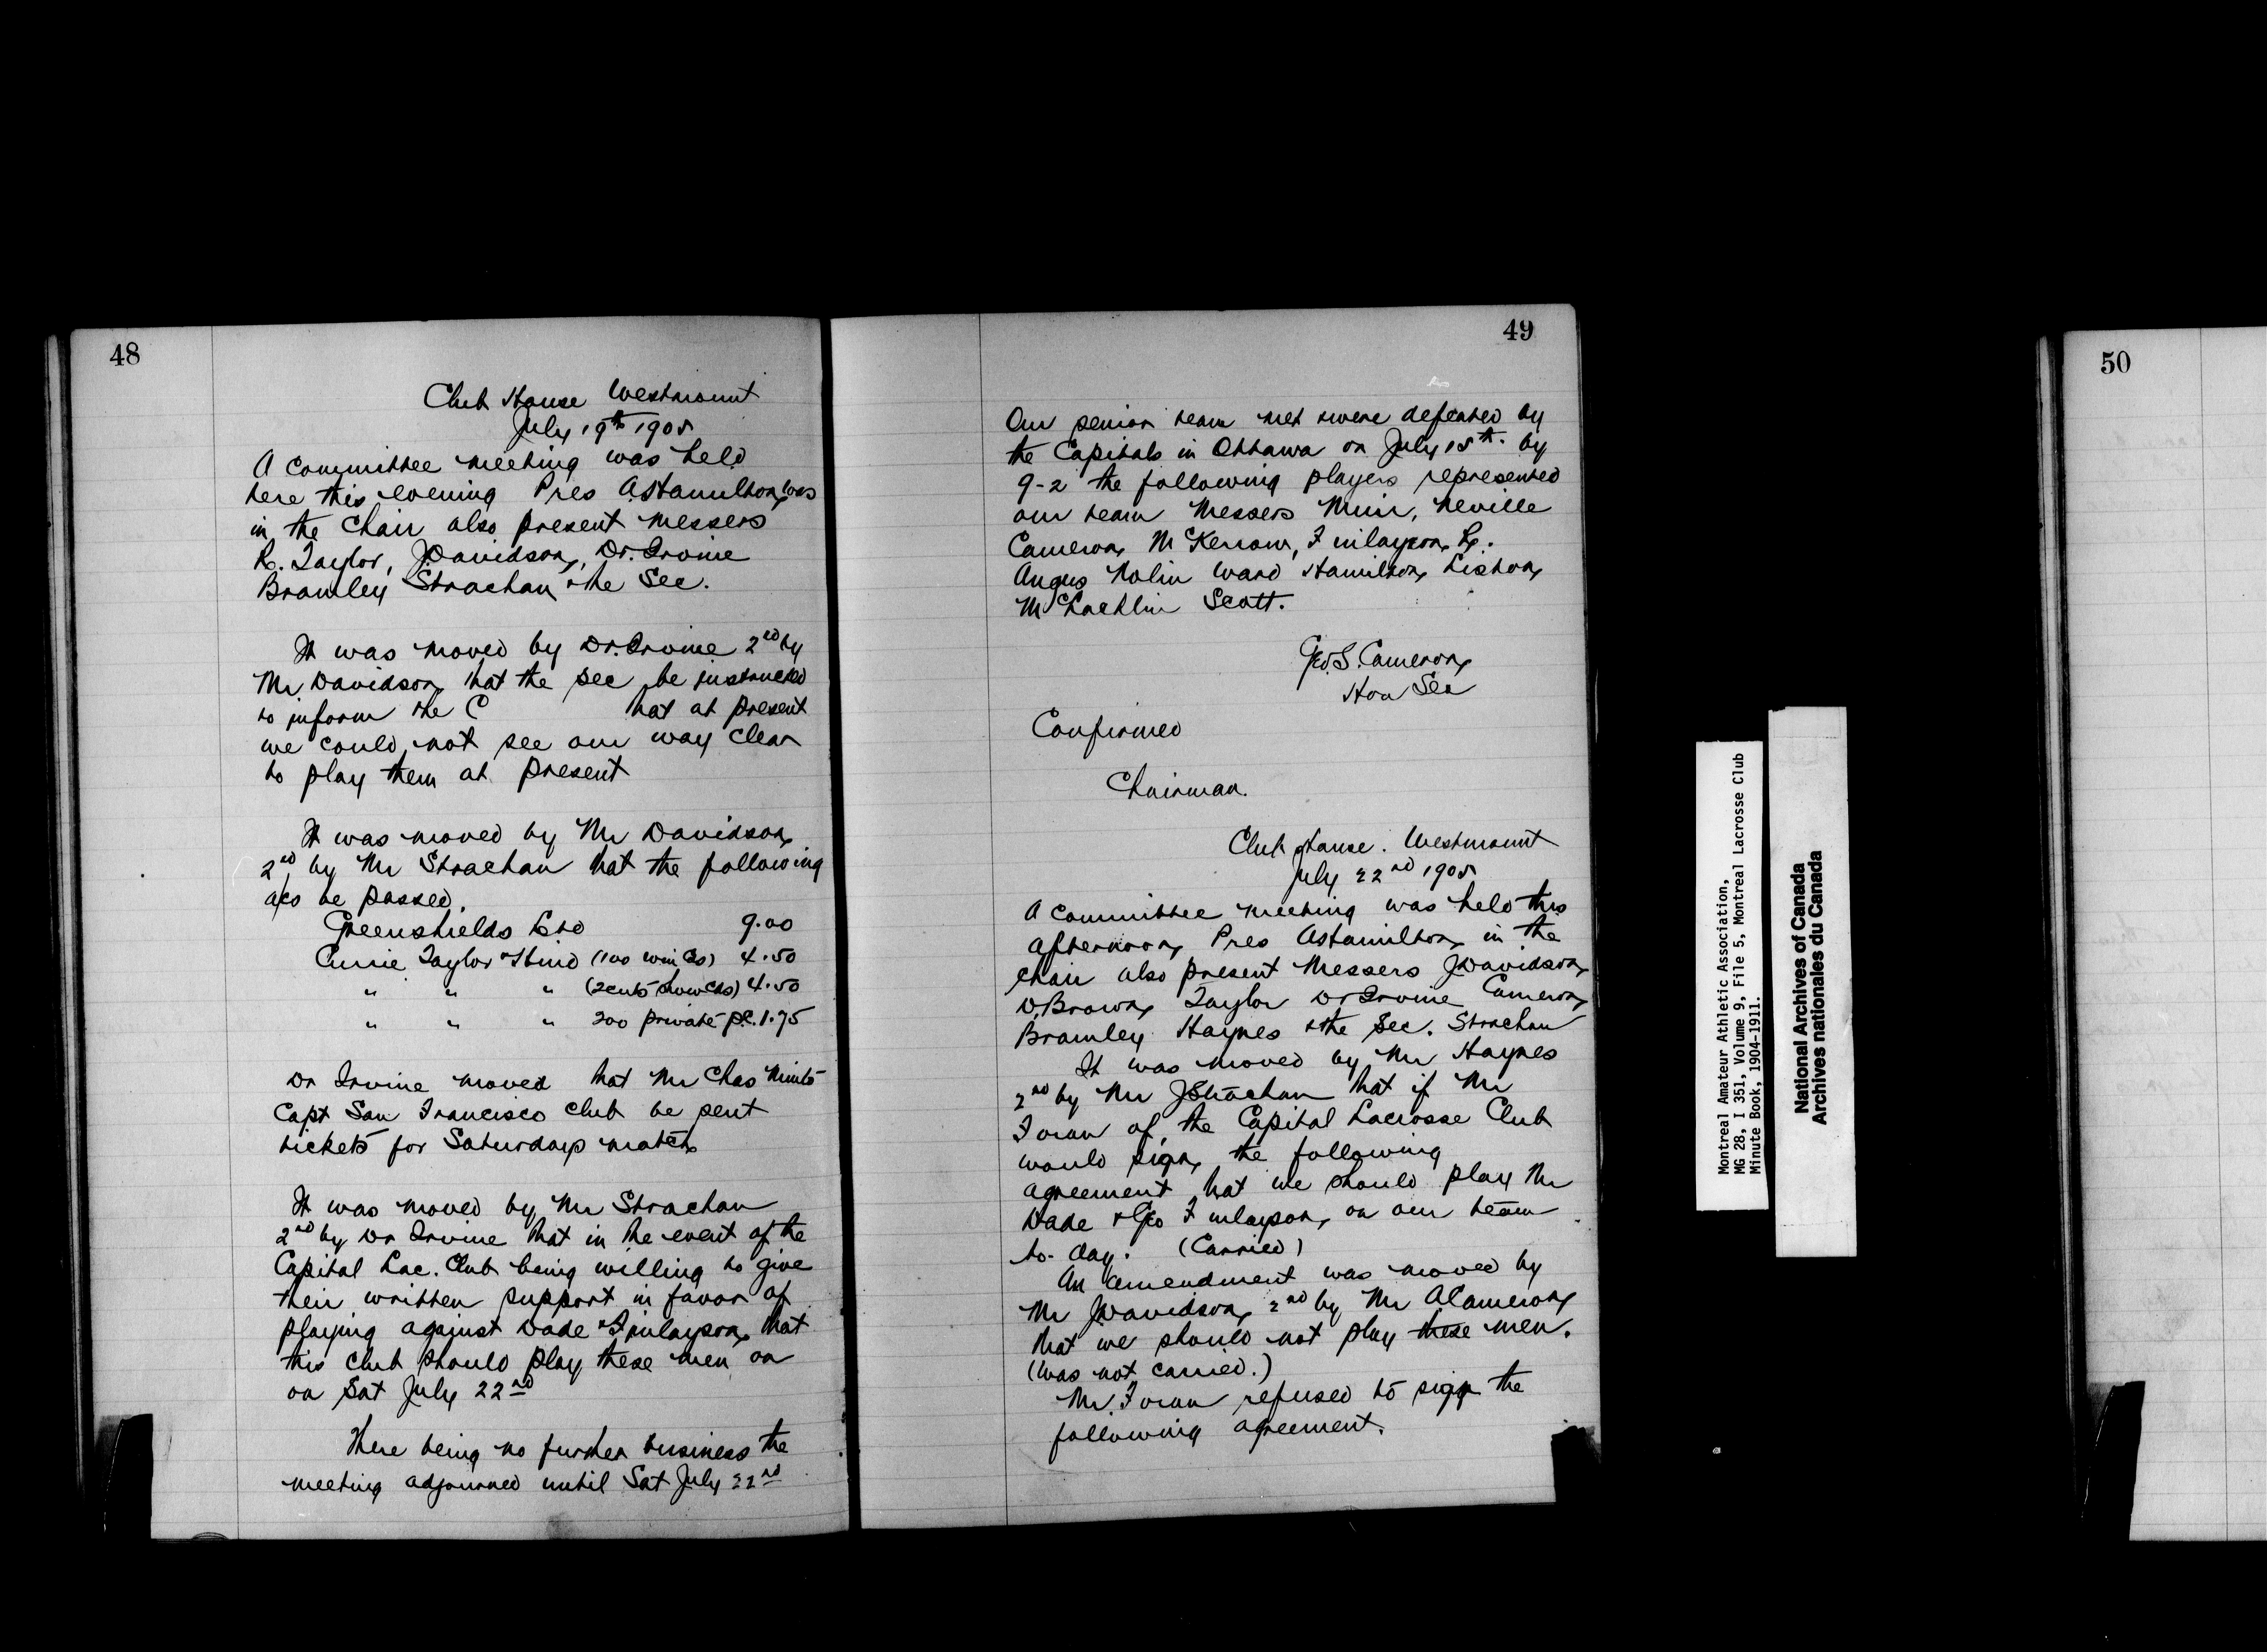 48
Club House Westmount
July 19th 1905
A committee meeting was held
here this evening Pres A Hamilton was
in the Chair also present Messers
R. Taylor, J Davidson, Dr. Irvine
Bramley Strachan & the Sec.
It was moved by Dr. Irvine 2nd by
Mr Davidson that the sec be instructed
to inform the C that at present
we could not see our way clear
to play them at present
It was moved by Mr Davidson
2nd by Mr Strachan that the following
a/cs be passed.
Greenshields Ltd 9.00
Currie Taylor & Hind (100 win Cds) 4.50
" " " (2 cuts show Cds) 4.50
" " " 200 private p.c. 1.75
Dr Irvine moved that Mr Chas Minto
Capt San Francisco Club be sent
tickets for Saturdays match
It was moved by Mr Strachan
2nd by Dr Irvine that in the event of the
Capital Lac. Club being willing to give
their written support in favor of
playing against Dade & Finlayson, that
this club should play these men on
on Sat July 22nd
There being no further business the
meeting adjourned until Sat July 22nd
49
Our senior team met & were defeated by
the Capitals in Ottawa on July 15th. by
9-2 the following players represented
our team Messers Muir, Neville
Cameron, McKerrow, Finlayson,
Angus Nolin Ward Hamilton, Lishon,
McLachlin Scott.
Geo. S. Cameron,
Hon Sec
Confirmed
Chairman.
Club House. Westmount
July 22nd 1905
A committee meeting was held this
afternoon, Pres A Hamilton, in the
chair also present Messers J Davidson,
D. Brown, Taylor Dr Irvine Cameron,
Bramley Haynes & the Sec. Strachan
It was moved by Mr Haynes
2nd by Mr J Strachan that if Mr
Foran of the Capital Lacrosse Club
would sign, the following
agreement that we should play Mr
Dade & Geo Finlayson, on our team
to-day. (Carried)
An amendment was moved by
Mr J Davidson, 2nd by Mr A Cameron,
that we should not play these men.
(was not carried.)
Mr. Foran refused to sign the
following agreement.
Montreal Amateur Athletic Association,
MG 28, I 351, Volume 9, File 5, Montreal Lacrosse Club
Minute Book, 1904-1911.
National Archives of Canada
Archives nationales du Canada
50